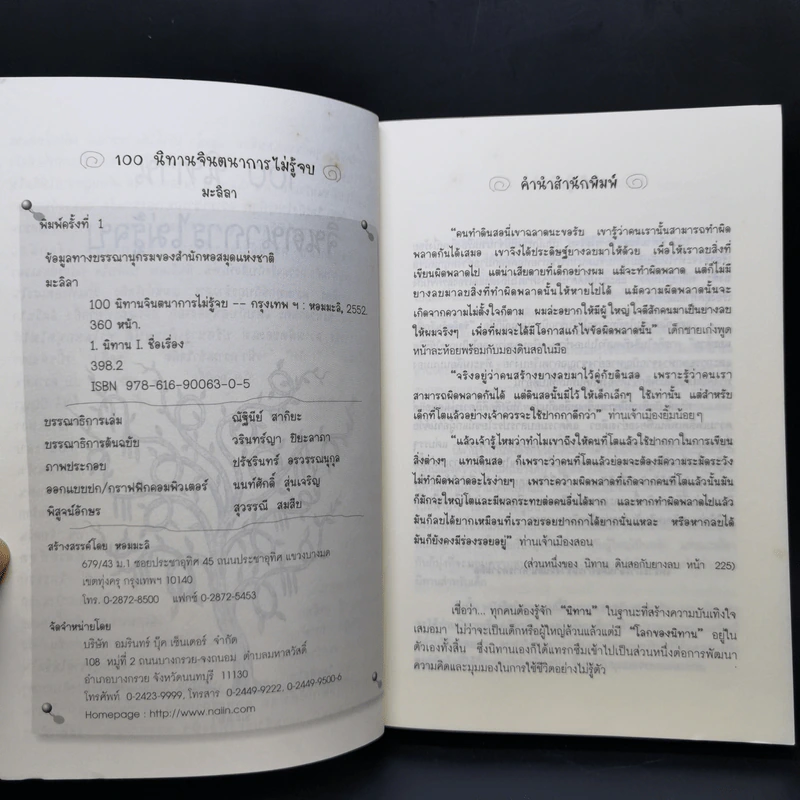 100 นิทานจินตนาการไม่รู้จบ
มะลิลา
พิมพ์ครั้งที่ 1
ข้อมูลทางบรรณานุกรมของสำนักหอสมุดแห่งชาติ
มะลิลา
100 นิทานจินตนาการไม่รู้จบ -- กรุงเทพ ฯ : หอมมะลิ, 2552.
360 หน้า.
1. นิทาน I. ชื่อเรื่อง
398.2
ISBN 978-616-90063-0-5
บรรณาธิการเล่ม ณัฐินีย์ สากิยะ
บรรณาธิการต้นฉบับ วรินทร์ญา ปิยะลาภา
ภาพประกอบ ปรัชรินทร์ อรวรรณนุกูล
ออกแบบปก/กราฟฟิคคอมพิวเตอร์ นนท์ศักดิ์ สุ่นเจริญ
พิสูจน์อักษร สุวรรณี สมสืบ
สร้างสรรค์โดย หอมมะลิ
679/43 ม.1 ซอยประชาอุทิศ 45 ถนนประชาอุทิศ แขวงบางมด
เขตทุ่งครุ กรุงเทพฯ 10140
โทร. 0-2872-8500 แฟกซ์ 0-2872-5453
จัดจำหน่ายโดย
บริษัท อมรินทร์ บุ๊ค เซ็นเตอร์ จำกัด
108 หมู่ที่ 2 ถนนบางกรวย-จงถนอม ตำบลมหาสวัสดิ์
อำเภอบางกรวย จังหวัดนนทบุรี 11130
โทรศัพท์ 0-2423-9999, โทรสาร 0-2449-9222, 0-2449-9500-6
Homepage : http://www.naiin.com
คำนำสำนักพิมพ์
"คนทำดินสอนี่เขาฉลาดนะขอรับ เขารู้ว่าคนเรานั้นสามารถทำผิด
พลาดกันได้เสมอ เขาจึงได้ประดิษฐ์ยางลบมาให้ด้วย เพื่อให้เราลบสิ่งที่
เขียนผิดพลาดไป แต่น่าเสียดายที่เด็กอย่างผม แม้จะทำผิดพลาด แต่ก็ไม่มี
ยางลบมาลบสิ่งที่ทำผิดพลาดนั้นให้หายไปได้ แม้ความผิดพลาดนั้นจะ
เกิดจากความไม่ตั้งใจก็ตาม ผมล่ะอยากให้มีผู้ใหญ่ใจดีสักคนมาเป็นยางลบ
ให้ผมจริงๆ เพื่อที่ผมจะได้มีโอกาสแก้ไขข้อผิดพลาดนั้น" เด็กชายเก่งพูด
หน้าละห้อยพร้อมกับมองดินสอในมือ
"จริงอยู่ว่าคนสร้างยางลบมาไว้คู่กับดินสอ เพราะรู้ว่าคนเรา
สามารถผิดพลาดกันได้ แต่ดินสอนั้นมีไว้ให้เด็กเล็กๆ ใช้เท่านั้น แต่สำหรับ
เด็กที่โตแล้วอย่างเจ้าควรจะใช้ปากกาดีกว่า" ท่านเจ้าเมืองยิ้มน้อยๆ
"แล้วเจ้ารู้ไหมว่าทำไมเขาถึงให้คนที่โตแล้วใช้ปากกาในการเขียน
สิ่งต่างๆ แทนดินสอ ก็เพราะว่าคนที่โตแล้วย่อมจะต้องมีความระมัดระวัง
ไม่ทำผิดพลาดอะไรง่ายๆ เพราะความผิดพลาดที่เกิดจากคนที่โตแล้วนั้นมัน
ก็มักจะใหญ่โตและมีผลกระทบต่อคนอื่นได้มาก และหากทำผิดพลาดไปแล้ว
มันก็ลบได้ยากเหมือนที่เราลบรอยปากกาได้ยากนั่นแหละ หรือหากลบได้
มันก็ยังคงมีร่องรอยอยู่" ท่านเจ้าเมืองสอน
(ส่วนหนึ่งของ นิทาน ดินสอกับยางลบ หน้า 225)
เชื่อว่า... ทุกคนต้องรู้จัก "นิทาน" ในฐานะที่สร้างความบันเทิงใจ
เสมอมา ไม่ว่าจะเป็นเด็กหรือผู้ใหญ่ล้วนแล้วแต่มี "โลกของนิทาน" อยู่ใน
ตัวเองทั้งสิ้น ซึ่งนิทานเองก็ได้แทรกซึมเข้าไปเป็นส่วนหนึ่งต่อการพัฒนา
ความคิดและมุมมองในการใช้ชีวิตอย่างไม่รู้ตัว